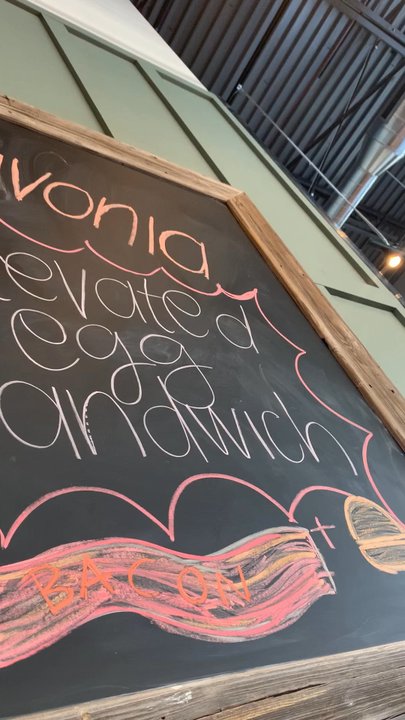 vonia
evated
egg
andwich
BACON